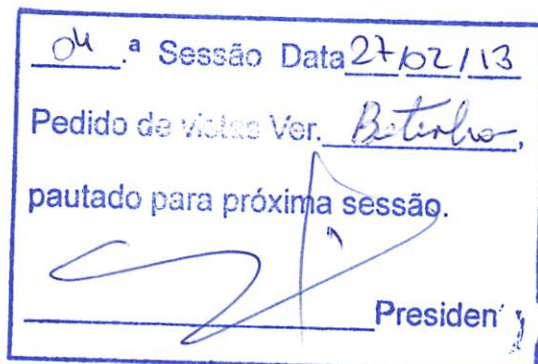 04.ª Sessão Data 27/02/13
Pedido de vistas Ver. Betinho,
pautado para próxima sessão.
Presiden